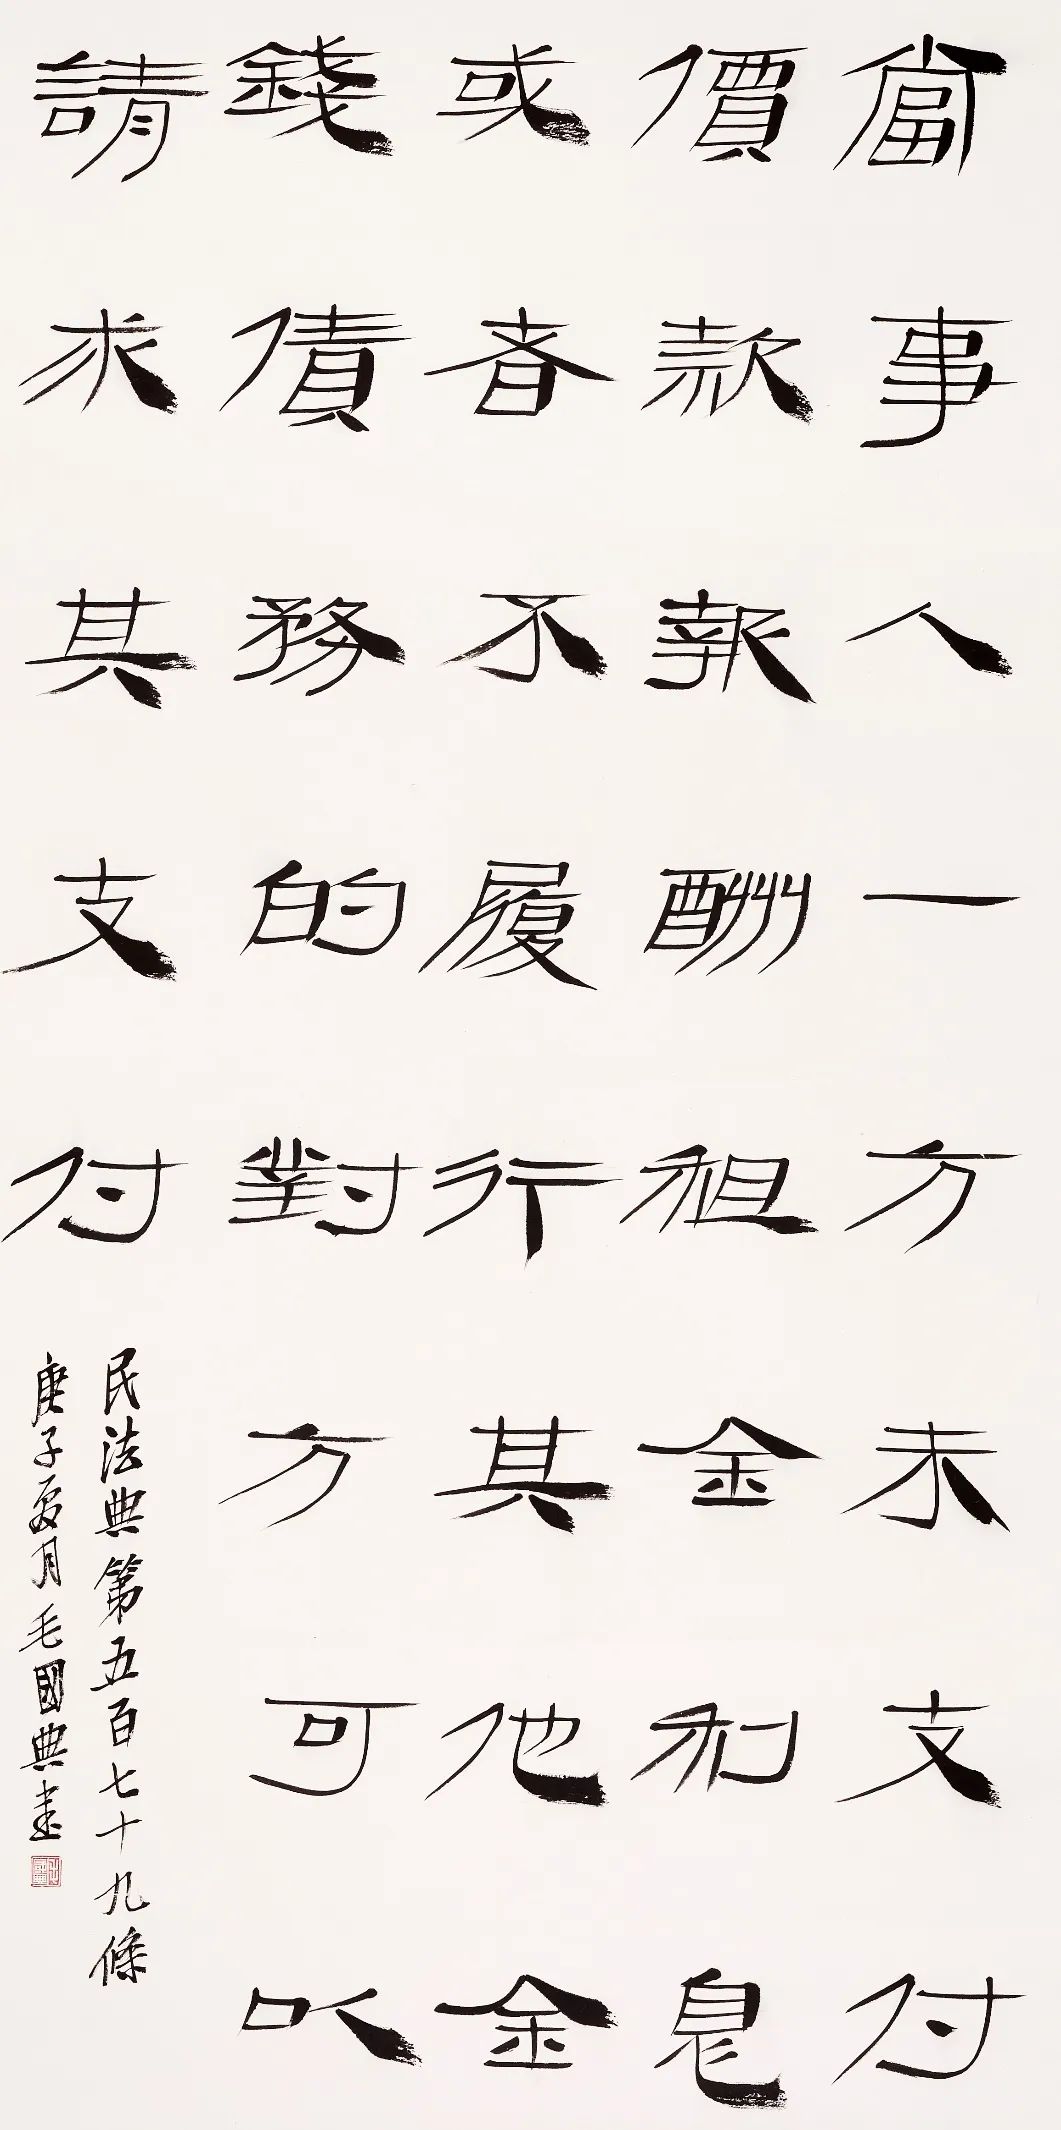 當事人一方未支付
價款報酬租金利息
或者不履行其他金
錢債務的對方可以
請求其支付
民法典第五百七十九條
庚子夏月毛國典書